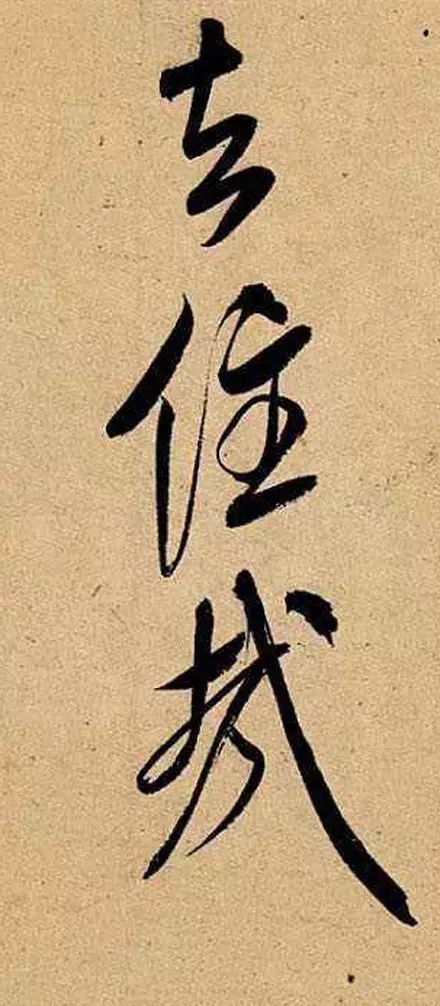 去住哉